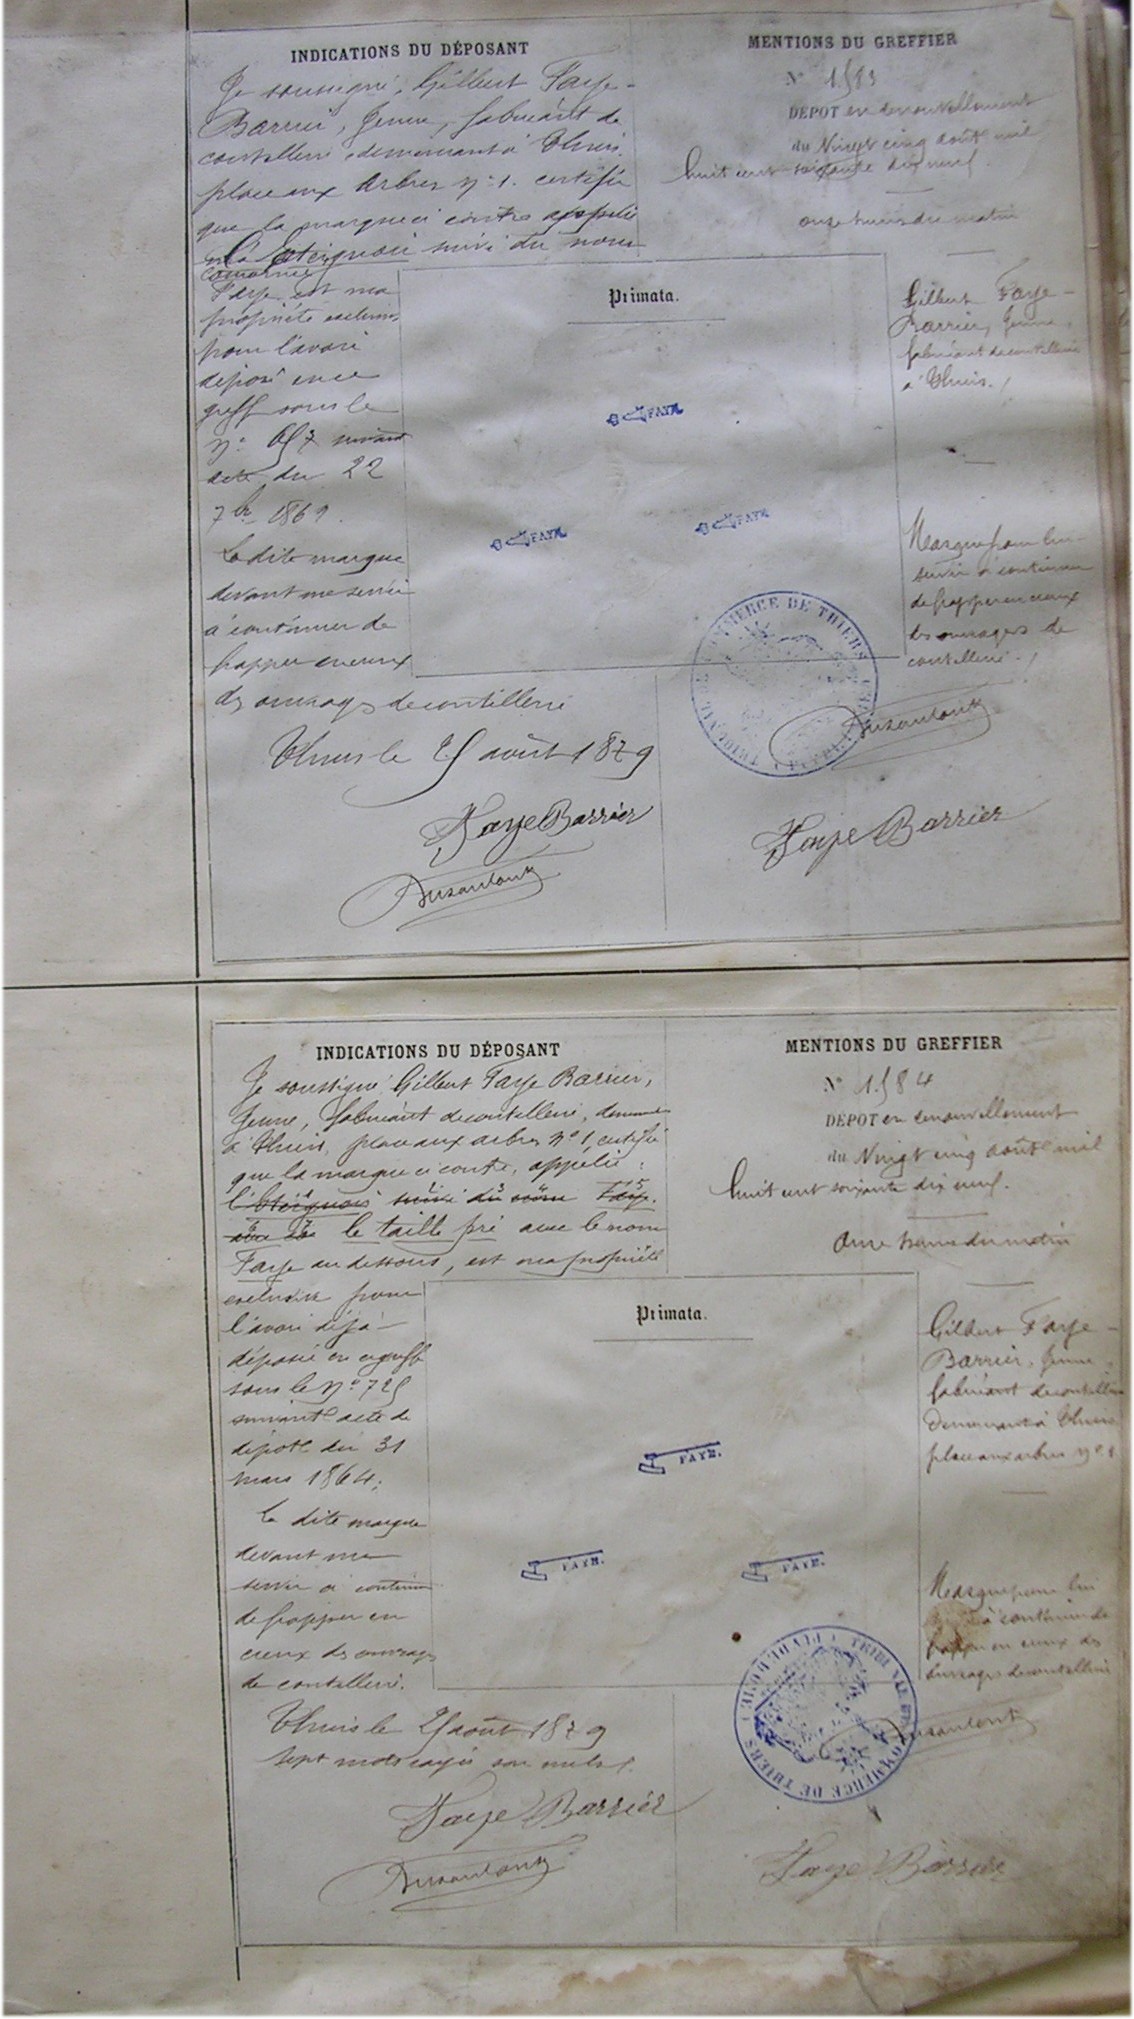 INDICATIONS DU DÉPOSANT
Je soussigné, Gilbert Faye-
Barrier, Jeune, fabricant de
coutellerie demeurant à Thiers
place aux Arbres No 1. certifie
que la marque ci contre appelée
suivi du nom
Faye est ma
propriété exclusive
pour l'avoir
déposé en ce
greff sous le
No 657 suivant
acte du 22
7bre 1869.
La dite marque
devant me servir
à continuer de
frapper en creux
des ouvrages de coutellerie
Thiers le 25 août 1879
Faye Barrier
MENTIONS DU GREFFIER
No 1583
DÉPOT en renouvellement
du Vingt cinq août mil
huit cent soixante dix neuf.
onze heures du matin
Primata.
FAYE
FAYE
FAYE
Gilbert Faye-
Barrier, Jeune,
fabricant de coutellerie
à Thiers.
Marque pour lui
servir à continuer
de frapper en creux
des ouvrages de
coutellerie.
TRIBUNAL DE COMMERCE DE THIERS
Faye Barrier
INDICATIONS DU DÉPOSANT
Je soussigné Gilbert Faye Barrier,
Jeune, fabricant de coutellerie, demeurant
à Thiers, place aux arbres No 1, certifie
que la marque ci contre, appelée :
suivi du nom Faye.
le taille pré avec le nom
Faye au dessous, est ma propriété
exclusive pour
l'avoir déjà
déposée en ce greffe
sous le No 725
suivant acte de
dépôt du 31
mars 1864;
La dite marque
devant me
servir à continuer
de frapper en
creux des ouvrages
de coutellerie.
Thiers le 25 août 1879
Sept mots rayés sont nuls.
Faye Barrier
MENTIONS DU GREFFIER
No 1584
DÉPOT en renouvellement
du Vingt cinq août mil
huit cent soixante dix neuf.
Onze heures du matin
Primata.
FAYE.
FAYE.
FAYE.
Gilbert Faye-
Barrier, Jeune,
fabricant de coutellerie
demeurant à Thiers
place aux arbres No 1.
Marque pour lui
servir à continuer de
frapper en creux des
ouvrages de coutellerie
TRIBUNAL DE COMMERCE DE THIERS
Faye Barrier